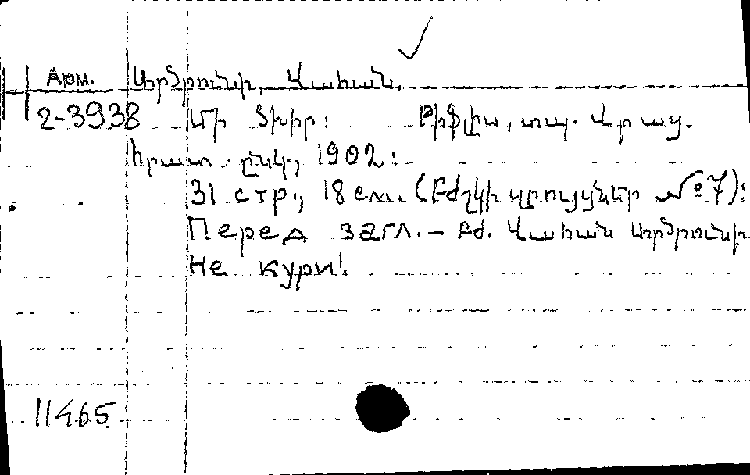 Арм. Արծրունի, Վահան.
2-3938 Մի ծխիր: Թիֆլիս, տպ. Վրաց.
հրատ. ընկ., 1902:
31 стр., 18 см. (Բժշկի զրույցներ №7):
Перед загл. – Բժ. Վահան Արծրունի
Не кури!
11465